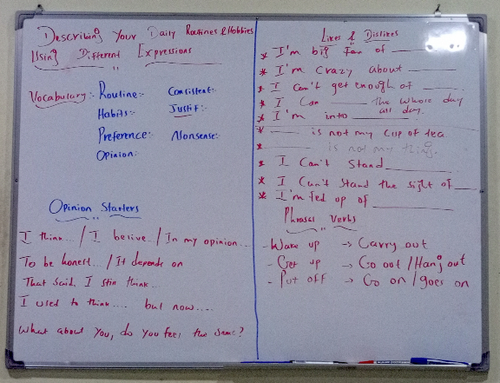 Describing Your Daily Routines & Hobbies
Using Different Expressions
Vocabulary:- Routine:- Consistent:-
Habits:- Justif:-
Preference:- Nonsense:-
Opinion:-
Opinion Starters
I think... / I belive.. / In my opinion...
To be honest.. / It depends on
That said, I still think...
I used to think.... but now....
What about you, do you feel the same?
Likes & Dislikes
* I'm big fan of
* I'm crazy about
* I can't get enough of
* I can the whole day
all day.
* I'm into
* is not my cup of tea.
* is not my thing.
* I can't stand
* I can't stand the sight of
* I'm fed up of
Phrasal Verbs
- Wake up → Carry out
- Get up → Go out / Hang out
- Put off → Go on / goes on